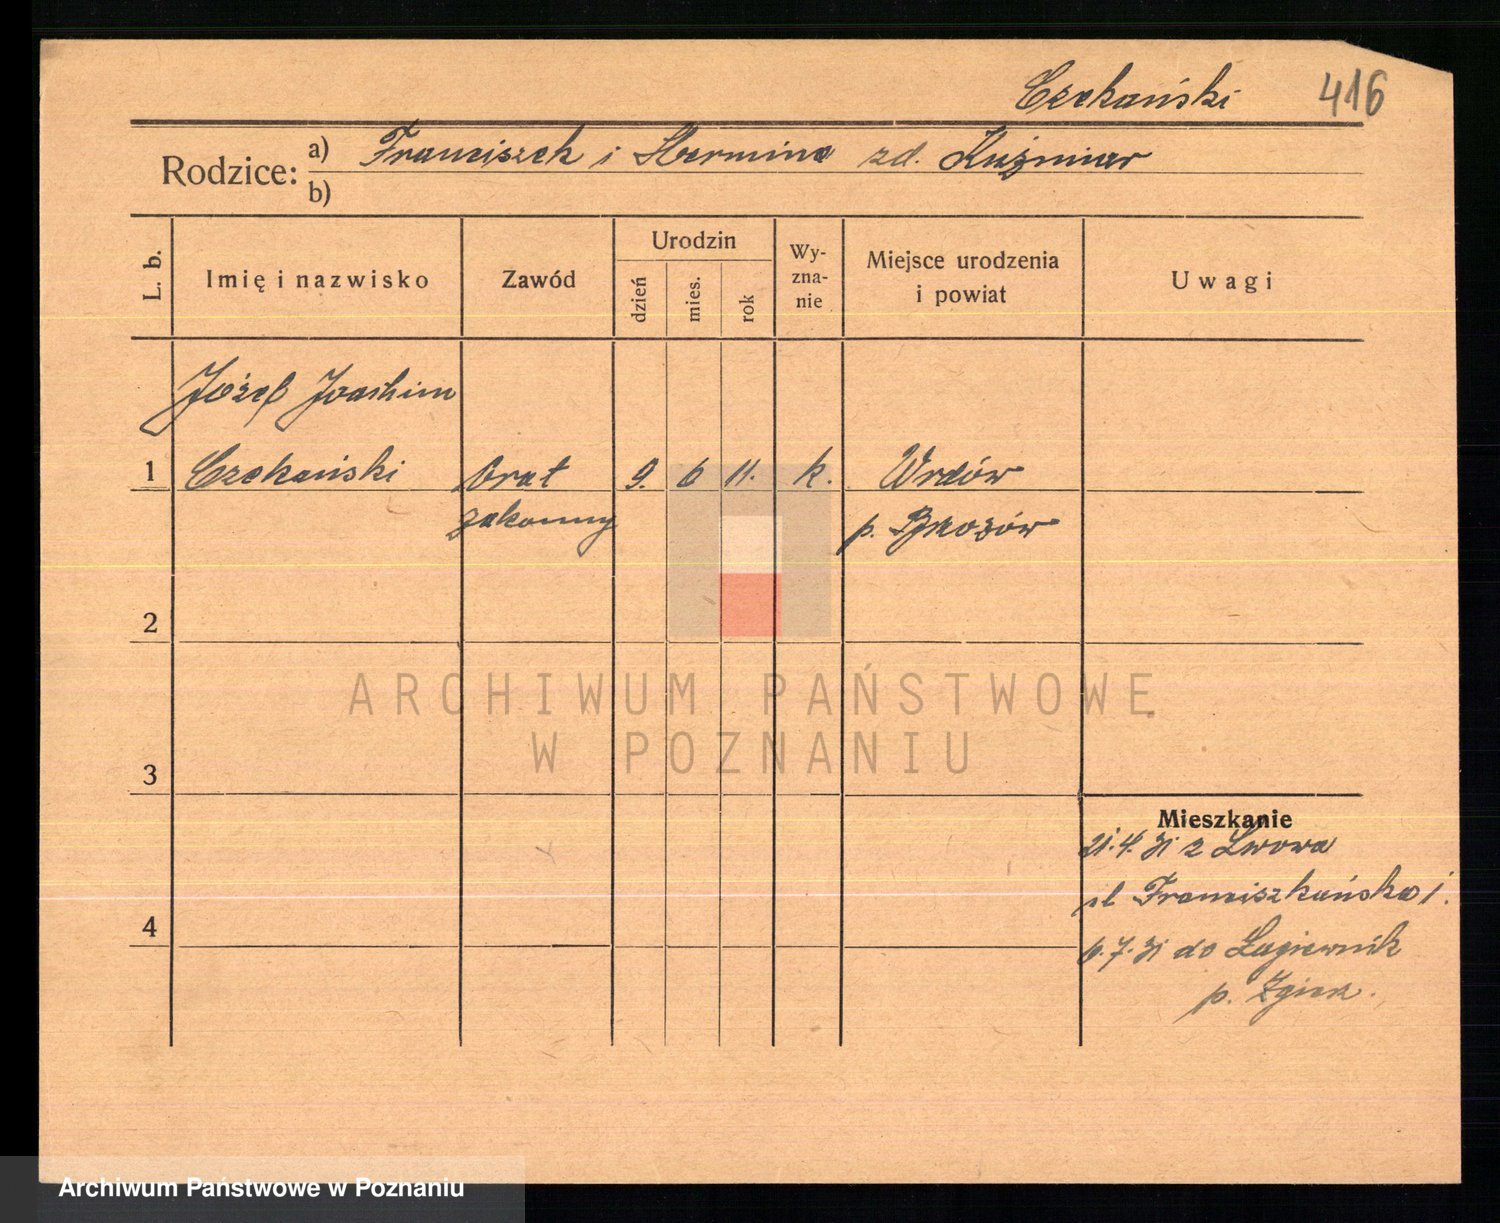 Czekański 416
Rodzice: a) Franciszek i Hermina zd. Kuźmiar
b)
L. b. Imię i nazwisko Zawód Urodzin Wy-zna-nie Miejsce urodzenia i powiat Uwagi
dzień mies. rok
Józef Joachim
1 Czekański brat 9. 6 11. k. Wzdów
zakonny p. Brzozów
2
ARCHIWUM PAŃSTWOWE
W POZNANIU
3
Mieszkanie
21.4.31 z Lwowa
ul Franciszkańska 1.
4
6.7.31 do Łagiewnik
p. Zgierz.
Archiwum Państwowe w Poznaniu